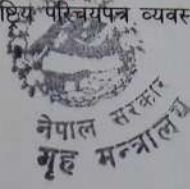 ष्ट्रिय परिचयपत्र व्यवस्
नेपाल सरकार
गृह मन्त्रालय